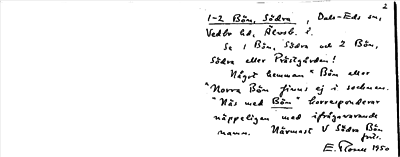 2
1-2 Bön, Södra, Dals-Eds sn,
Vedbo hd, Älvsb. l.
Se 1 Bön, Södra och 2 Bön,
Södra eller Prästgården!
Något hemman "Bön eller
"Norra Bön finns ej i socknen.
"Näs med Bön" korresponderar
näppeligen med ifrågavarande
namn. Närmast V Södra Bön
finns.
E. 1950